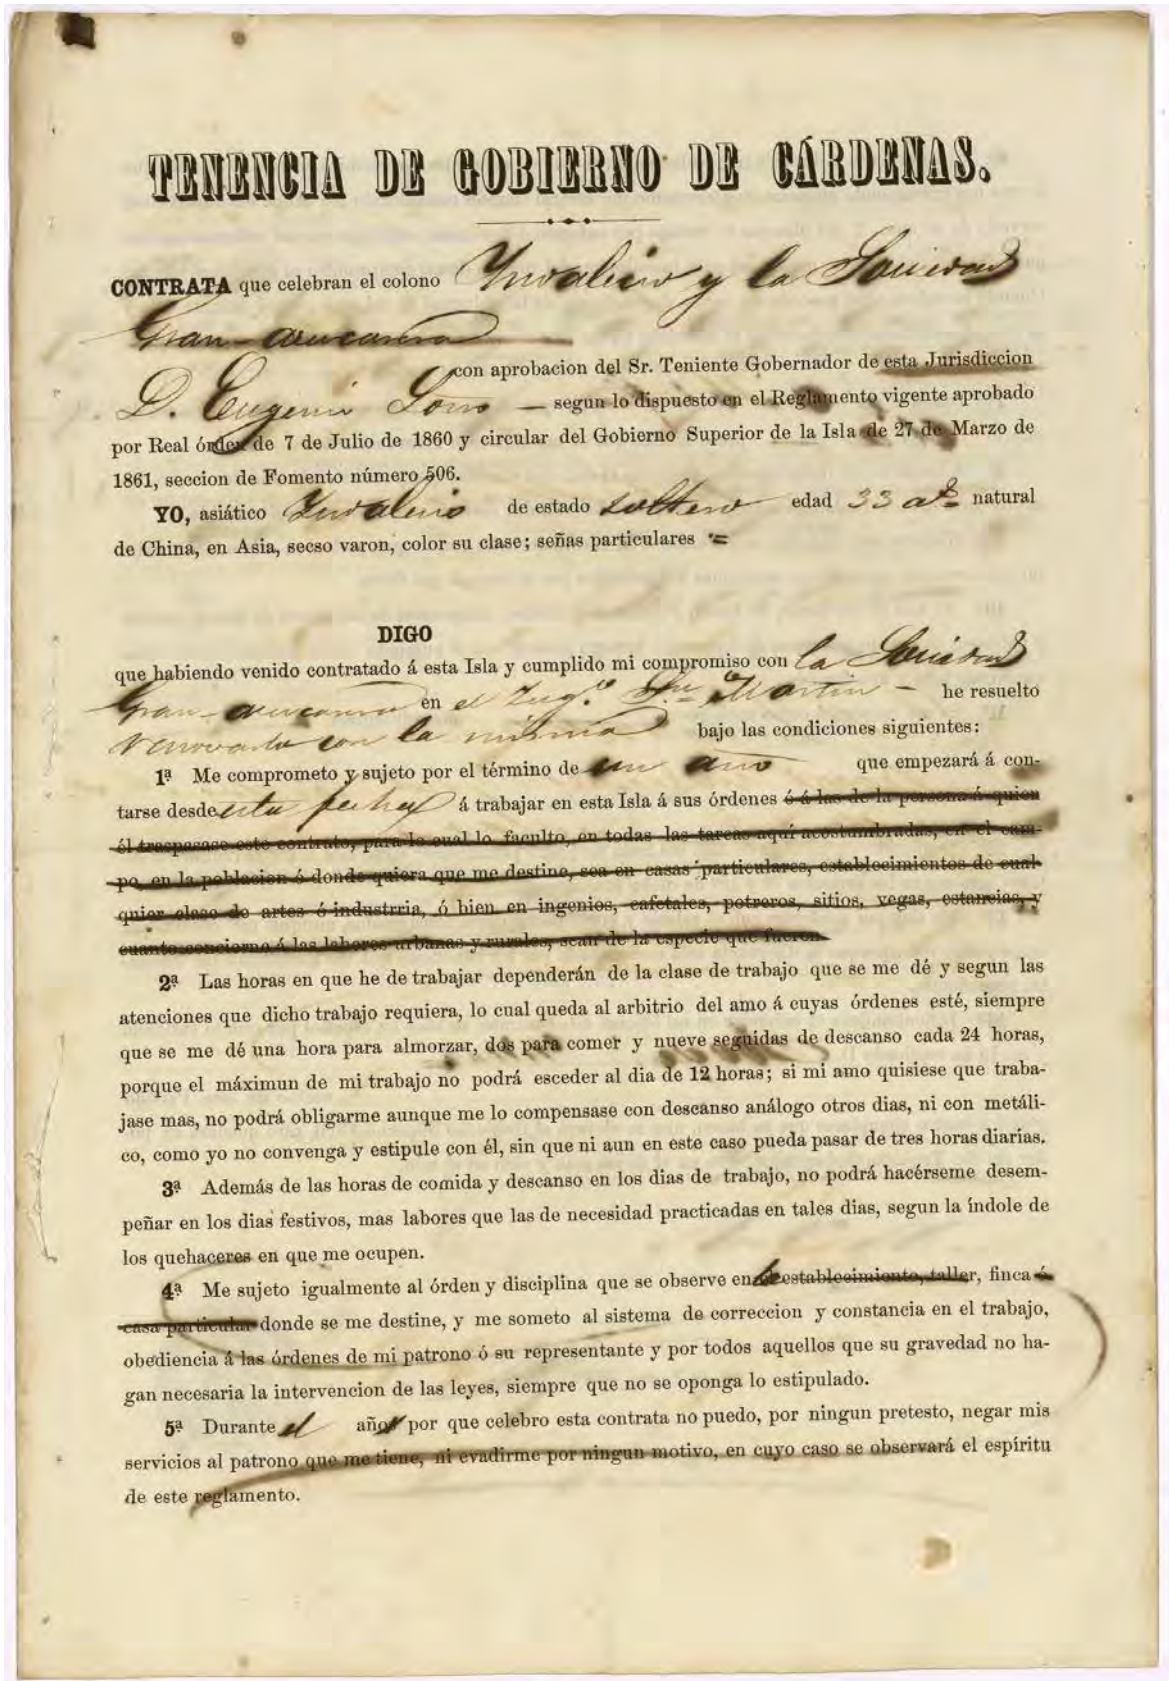 TENENCIA DE GOBIERNO DE CÁRDENAS.
CONTRATA que celebran el colono Yndalecio y la Sociedad
Gran-azucarera
con aprobacion del Sr. Teniente Gobernador de esta Jurisdiccion
D. Eugenio — segun lo dispuesto en el Reglamento vigente aprobado
por Real órden de 7 de Julio de 1860 y circular del Gobierno Superior de la Isla de 27 de Marzo de
1861, seccion de Fomento número 506.
YO, asiático Yndalecio de estado soltero edad 33 as natural
de China, en Asia, secso varon, color su clase; señas particulares =
DIGO
que habiendo venido contratado á esta Isla y cumplido mi compromiso con la Sociedad
Gran-azucarera en el Yngo. Sn. Martin — he resuelto
renovarlo con la misma bajo las condiciones siguientes:
1ª Me comprometo y sujeto por el término de un año que empezará á con-
tarse desde esta fecha á trabajar en esta Isla á sus órdenes ó á las de la persona á quien
él traspasase este contrato, para lo cual lo faculto, en todas las tareas aquí acostumbradas, en el cam-
po, en la poblacion ó donde quiera que me destine, sea en casas particulares, establecimientos de cual
quier clase de artes ó industrria, ó bien en ingenios, cafetales, potreros, sitios, vegas, estancias, y
cuanto concierne á las labores urbanas y rurales, sean de la especie que fueren.
2ª Las horas en que he de trabajar dependerán de la clase de trabajo que se me dé y segun las
atenciones que dicho trabajo requiera, lo cual queda al arbitrio del amo á cuyas órdenes esté, siempre
que se me dé una hora para almorzar, dos para comer y nueve seguidas de descanso cada 24 horas,
porque el máximun de mi trabajo no podrá esceder al dia de 12 horas; si mi amo quisiese que traba-
jase mas, no podrá obligarme aunque me lo compensase con descanso análogo otros dias, ni con metáli-
co, como yo no convenga y estipule con él, sin que ni aun en este caso pueda pasar de tres horas diarias.
3ª Además de las horas de comida y descanso en los dias de trabajo, no podrá hacérseme desem-
peñar en los dias festivos, mas labores que las de necesidad practicadas en tales dias, segun la índole de
los quehaceres en que me ocupen.
4ª Me sujeto igualmente al órden y disciplina que se observe en la establecimiento, taller, finca ó
casa particular donde se me destine, y me someto al sistema de correccion y constancia en el trabajo,
obediencia á las órdenes de mi patrono ó su representante y por todos aquellos que su gravedad no ha-
gan necesaria la intervencion de las leyes, siempre que no se oponga lo estipulado.
5ª Durante el año por que celebro esta contrata no puedo, por ningun pretesto, negar mis
servicios al patrono que me tiene, ni evadirme por ningun motivo, en cuyo caso se observará el espíritu
de este reglamento.